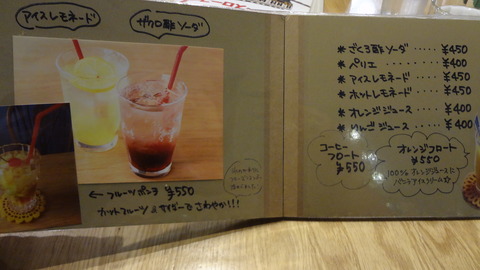 アイスレモネード
ザクロ酢ソーダ
← フルーツポンチ ¥550
カットフルーツ
さわやか!!!
* ざくろ酢ソーダ ····· ¥450
* ペリエ ········ ¥400
* アイスレモネード ···· ¥450
* ホットレモネード ···· ¥450
* オレンジジュース ···· ¥400
* りんごジュース ···· ¥400
コーヒー
フロート
¥550
オレンジフロート
¥550
100% オレンジジュースに
バニラアイスクリーム☆